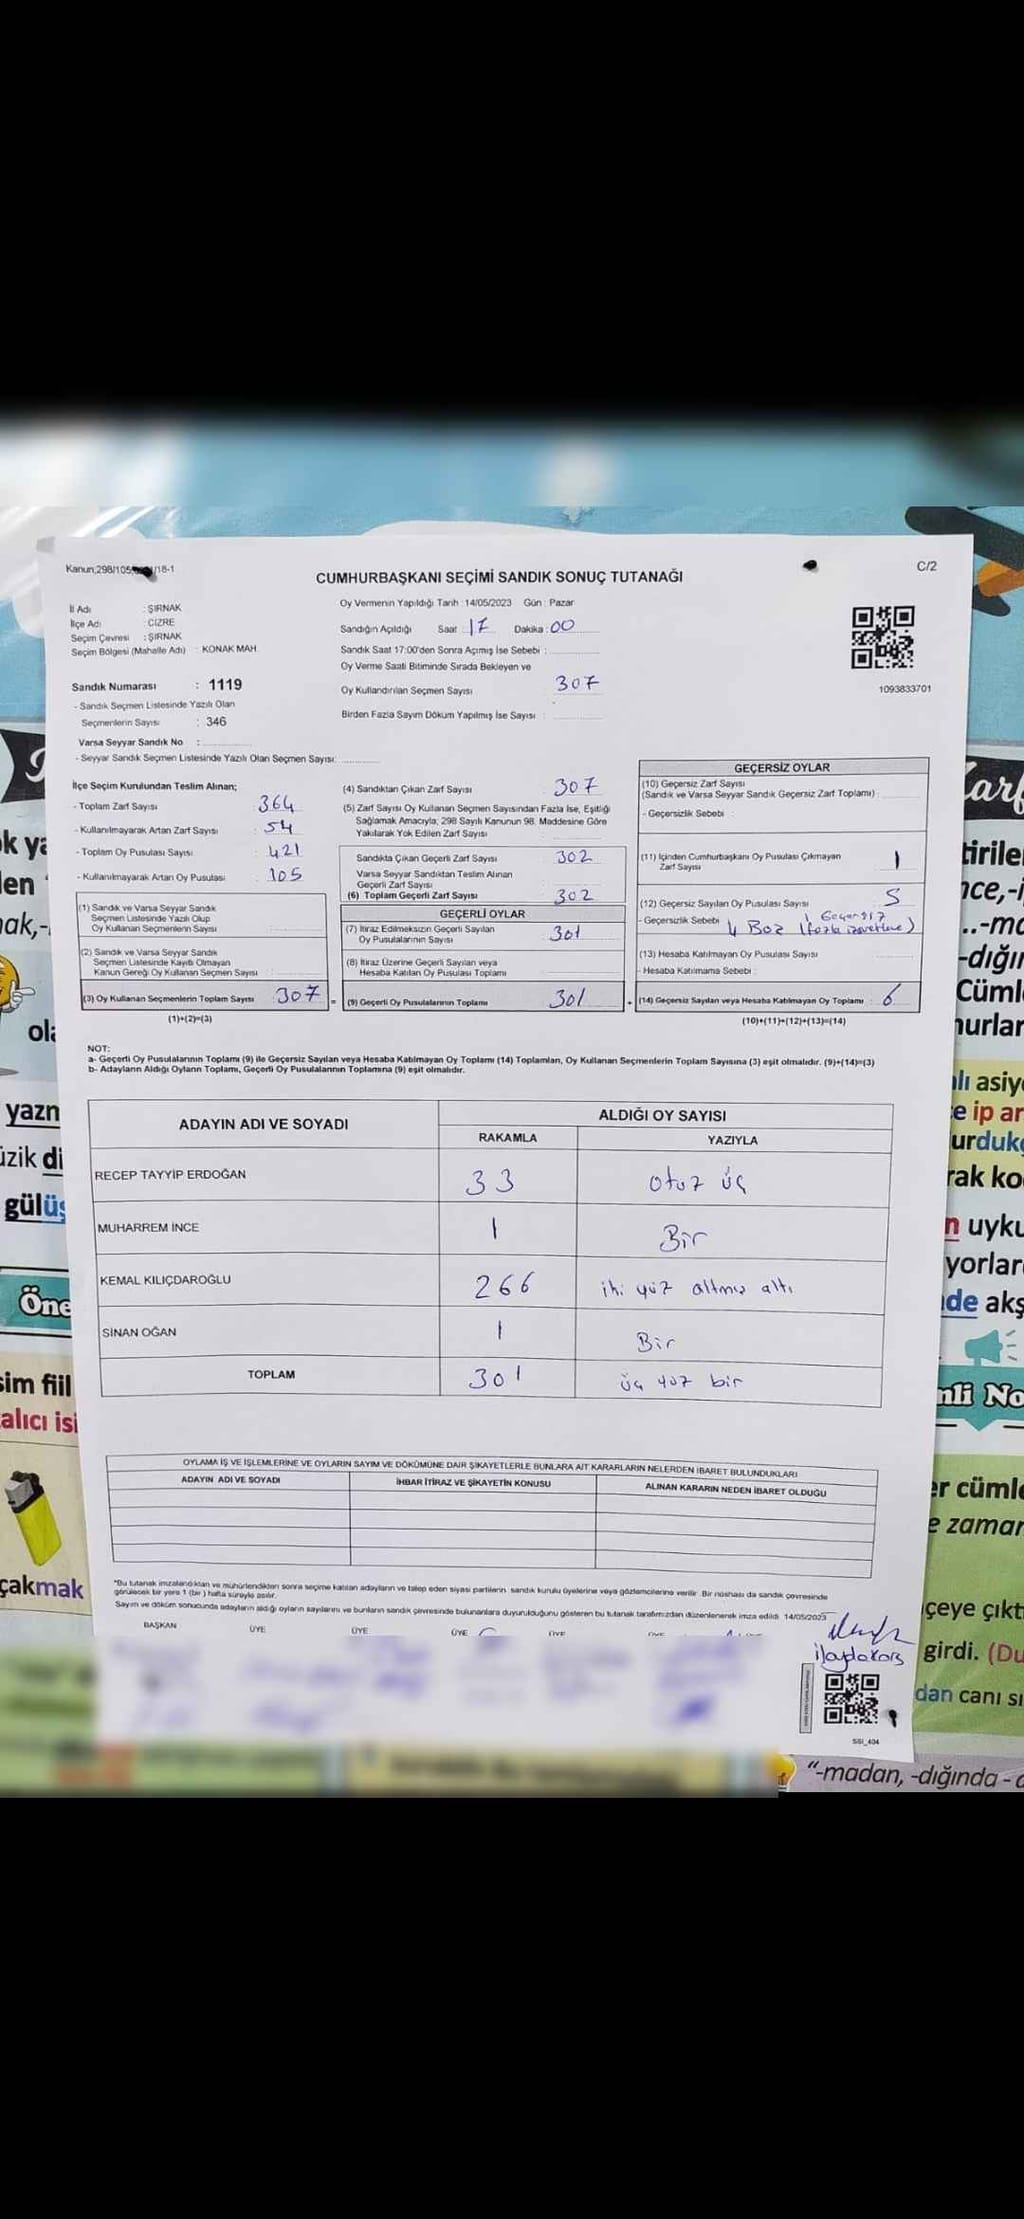 Kanun;298/105
/18-1
C/2
CUMHURBAŞKANI SEÇİMİ SANDIK SONUÇ TUTANAĞI
İl Adı : ŞIRNAK
İlçe Adı : CİZRE
Seçim Çevresi : ŞIRNAK
Seçim Bölgesi (Mahalle Adı) : KONAK MAH.
Sandık Numarası : 1119
- Sandık Seçmen Listesinde Yazılı Olan
Seçmenlerin Sayısı : 346
Varsa Seyyar Sandık No :
- Seyyar Sandık Seçmen Listesinde Yazılı Olan Seçmen Sayısı:
Oy Vermenin Yapıldığı Tarih : 14/05/2023 Gün : Pazar
Sandığın Açıldığı Saat : 17 Dakika : 00
Sandık Saat 17:00'den Sonra Açımış İse Sebebi :
Oy Verme Saati Bitiminde Sırada Bekleyen ve
Oy Kullandırılan Seçmen Sayısı 307
Birden Fazla Sayım Döküm Yapılmış İse Sayısı :
1093833701
İlçe Seçim Kurulundan Teslim Alınan;
- Toplam Zarf Sayısı : 364
- Kullanılmayarak Artan Zarf Sayısı : 54
- Toplam Oy Pusulası Sayısı : 421
- Kullanılmayarak Artan Oy Pusulası : 105
(1) Sandık ve Varsa Seyyar Sandık
Seçmen Listesinde Yazılı Olup
Oy Kullanan Seçmenlerin Sayısı
(2) Sandık ve Varsa Seyyar Sandık
Seçmen Listesinde Kayıtlı Olmayan
Kanun Gereği Oy Kullanan Seçmen Sayısı
(3) Oy Kullanan Seçmenlerin Toplam Sayısı 307
(1)+(2)=(3)
(4) Sandıktan Çıkan Zarf Sayısı 307
(5) Zarf Sayısı Oy Kullanan Seçmen Sayısından Fazla İse, Eşitliği
Sağlamak Amacıyla; 298 Sayılı Kanunun 98. Maddesine Göre
Yakılarak Yok Edilen Zarf Sayısı :
Sandıkta Çıkan Geçerli Zarf Sayısı 302
Varsa Seyyar Sandıktan Teslim Alınan
Geçerli Zarf Sayısı
(6) Toplam Geçerli Zarf Sayısı 302
GEÇERLİ OYLAR
(7) İtiraz Edilmeksizin Geçerli Sayılan
Oy Pusulalarının Sayısı 301
(8) İtiraz Üzerine Geçerli Sayılan veya
Hesaba Katılan Oy Pusulası Toplamı
= (9) Geçerli Oy Pusulalarının Toplamı 301
GEÇERSİZ OYLAR
(10) Geçersiz Zarf Sayısı
(Sandık ve Varsa Seyyar Sandık Geçersiz Zarf Toplamı) :
- Geçersizlik Sebebi :
(11) İçinden Cumhurbaşkanı Oy Pusulası Çıkmayan
Zarf Sayısı 1
(12) Geçersiz Sayılan Oy Pusulası Sayısı 5
- Geçersizlik Sebebi 4 Boz 1 Geçersiz
(fazla
(13) Hesaba Katılmayan Oy Pusulası Sayısı
- Hesaba Katılmama Sebebi :
+ (14) Geçersiz Sayılan veya Hesaba Katılmayan Oy Toplamı : 6
(10)+(11)+(12)+(13)=(14)
NOT:
a- Geçerli Oy Pusulalarının Toplamı (9) ile Geçersiz Sayılan veya Hesaba Katılmayan Oy Toplamı (14) Toplamları, Oy Kullanan Seçmenlerin Toplam Sayısına (3) eşit olmalıdır. (9)+(14)=(3)
b- Adayların Aldığı Oyların Toplamı, Geçerli Oy Pusulalarının Toplamına (9) eşit olmalıdır.
ADAYIN ADI VE SOYADI ALDIĞI OY SAYISI
RAKAMLA YAZIYLA
RECEP TAYYİP ERDOĞAN 33 otuz üç
MUHARREM İNCE 1 Bir
KEMAL KILIÇDAROĞLU 266 iki yüz altmış altı
SİNAN OĞAN 1 Bir
TOPLAM 301 üç yüz bir
OYLAMA İŞ VE İŞLEMLERİNE VE OYLARIN SAYIM VE DÖKÜMÜNE DAİR ŞİKAYETLERLE BUNLARA AİT KARARLARIN NELERDEN İBARET BULUNDUKLARI
ADAYIN ADI VE SOYADI İHBAR İTİRAZ VE ŞİKAYETİN KONUSU ALINAN KARARIN NEDEN İBARET OLDUĞU
*Bu tutanak imzalandıktan ve mühürlendikten sonra seçime katılan adayların ve talep eden siyasi partilerin sandık kurulu üyelerine veya gözlemcilerine verilir. Bir nüshası da sandık çevresinde
görülecek bir yere 1 (bir) hafta süreyle asılır.
Sayım ve döküm sonucunda adayların aldığı oyların sayılarını ve bunların sandık çevresinde bulunanlara duyurulduğunu gösteren bu tutanak tarafımızdan düzenlenerek imza edildi. 14/05/2023
BAŞKAN ÜYE ÜYE ÜYE ÜYE
SSI_404
ok ya
len
mak,-
ola
yazn
üzik di
gülüş
Öne
sim fiil
alıcı isi
çakmak
arf
tirile
nce,-i
..-mc
-dığın
Cüml
nurlar
lı asiye
e ip ar
urduk
rak ko
n uyku
yorlar
de akş
nli No
er cümle
e zamar
çeye çıktı
girdi. (Du
dan canı sı
"-madan, -dığında -